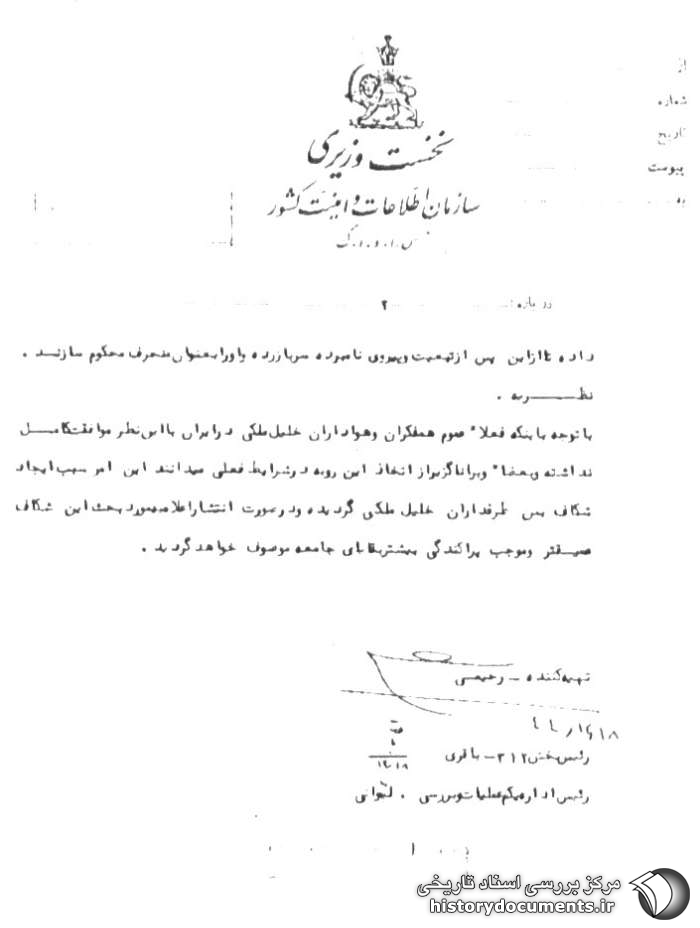 از
شماره
تاریخ
پیوست
نخست وزیری
سازمان اطلاعات و امنیت کشور
س.ا.و.ا.ک
درباره : ۲
داده تا از این پس از تبعیت و پیروی نامبرده سرباز زده و او را بعنوان منحرف محکوم سازند .
نظریه .
با توجه باینکه فعلا" عموم همفکران و هواداران خلیل ملکی در ایران با این نظر موافقت کامل
نداشته و بعضا" ویرا ناگزیر از اتخاذ این رویه در شرایط فعلی میدانند این امر سبب ایجاد
شکاف بین طرفداران خلیل ملکی گردیده و در صورت انتشار اعلامیه مورد بحث این شکاف
عمیقتر و موجب پراکندگی بیشتر بقایای جامعه موصوف خواهد گردید .
تهیه کننده – رحیمی
رئیس بخش ۳۱۲ – باقری
۱۲/۱۸
رئیس اداره یکم عملیات و بررسی .
مرکز بررسی اسناد تاریخی
historydocuments.ir